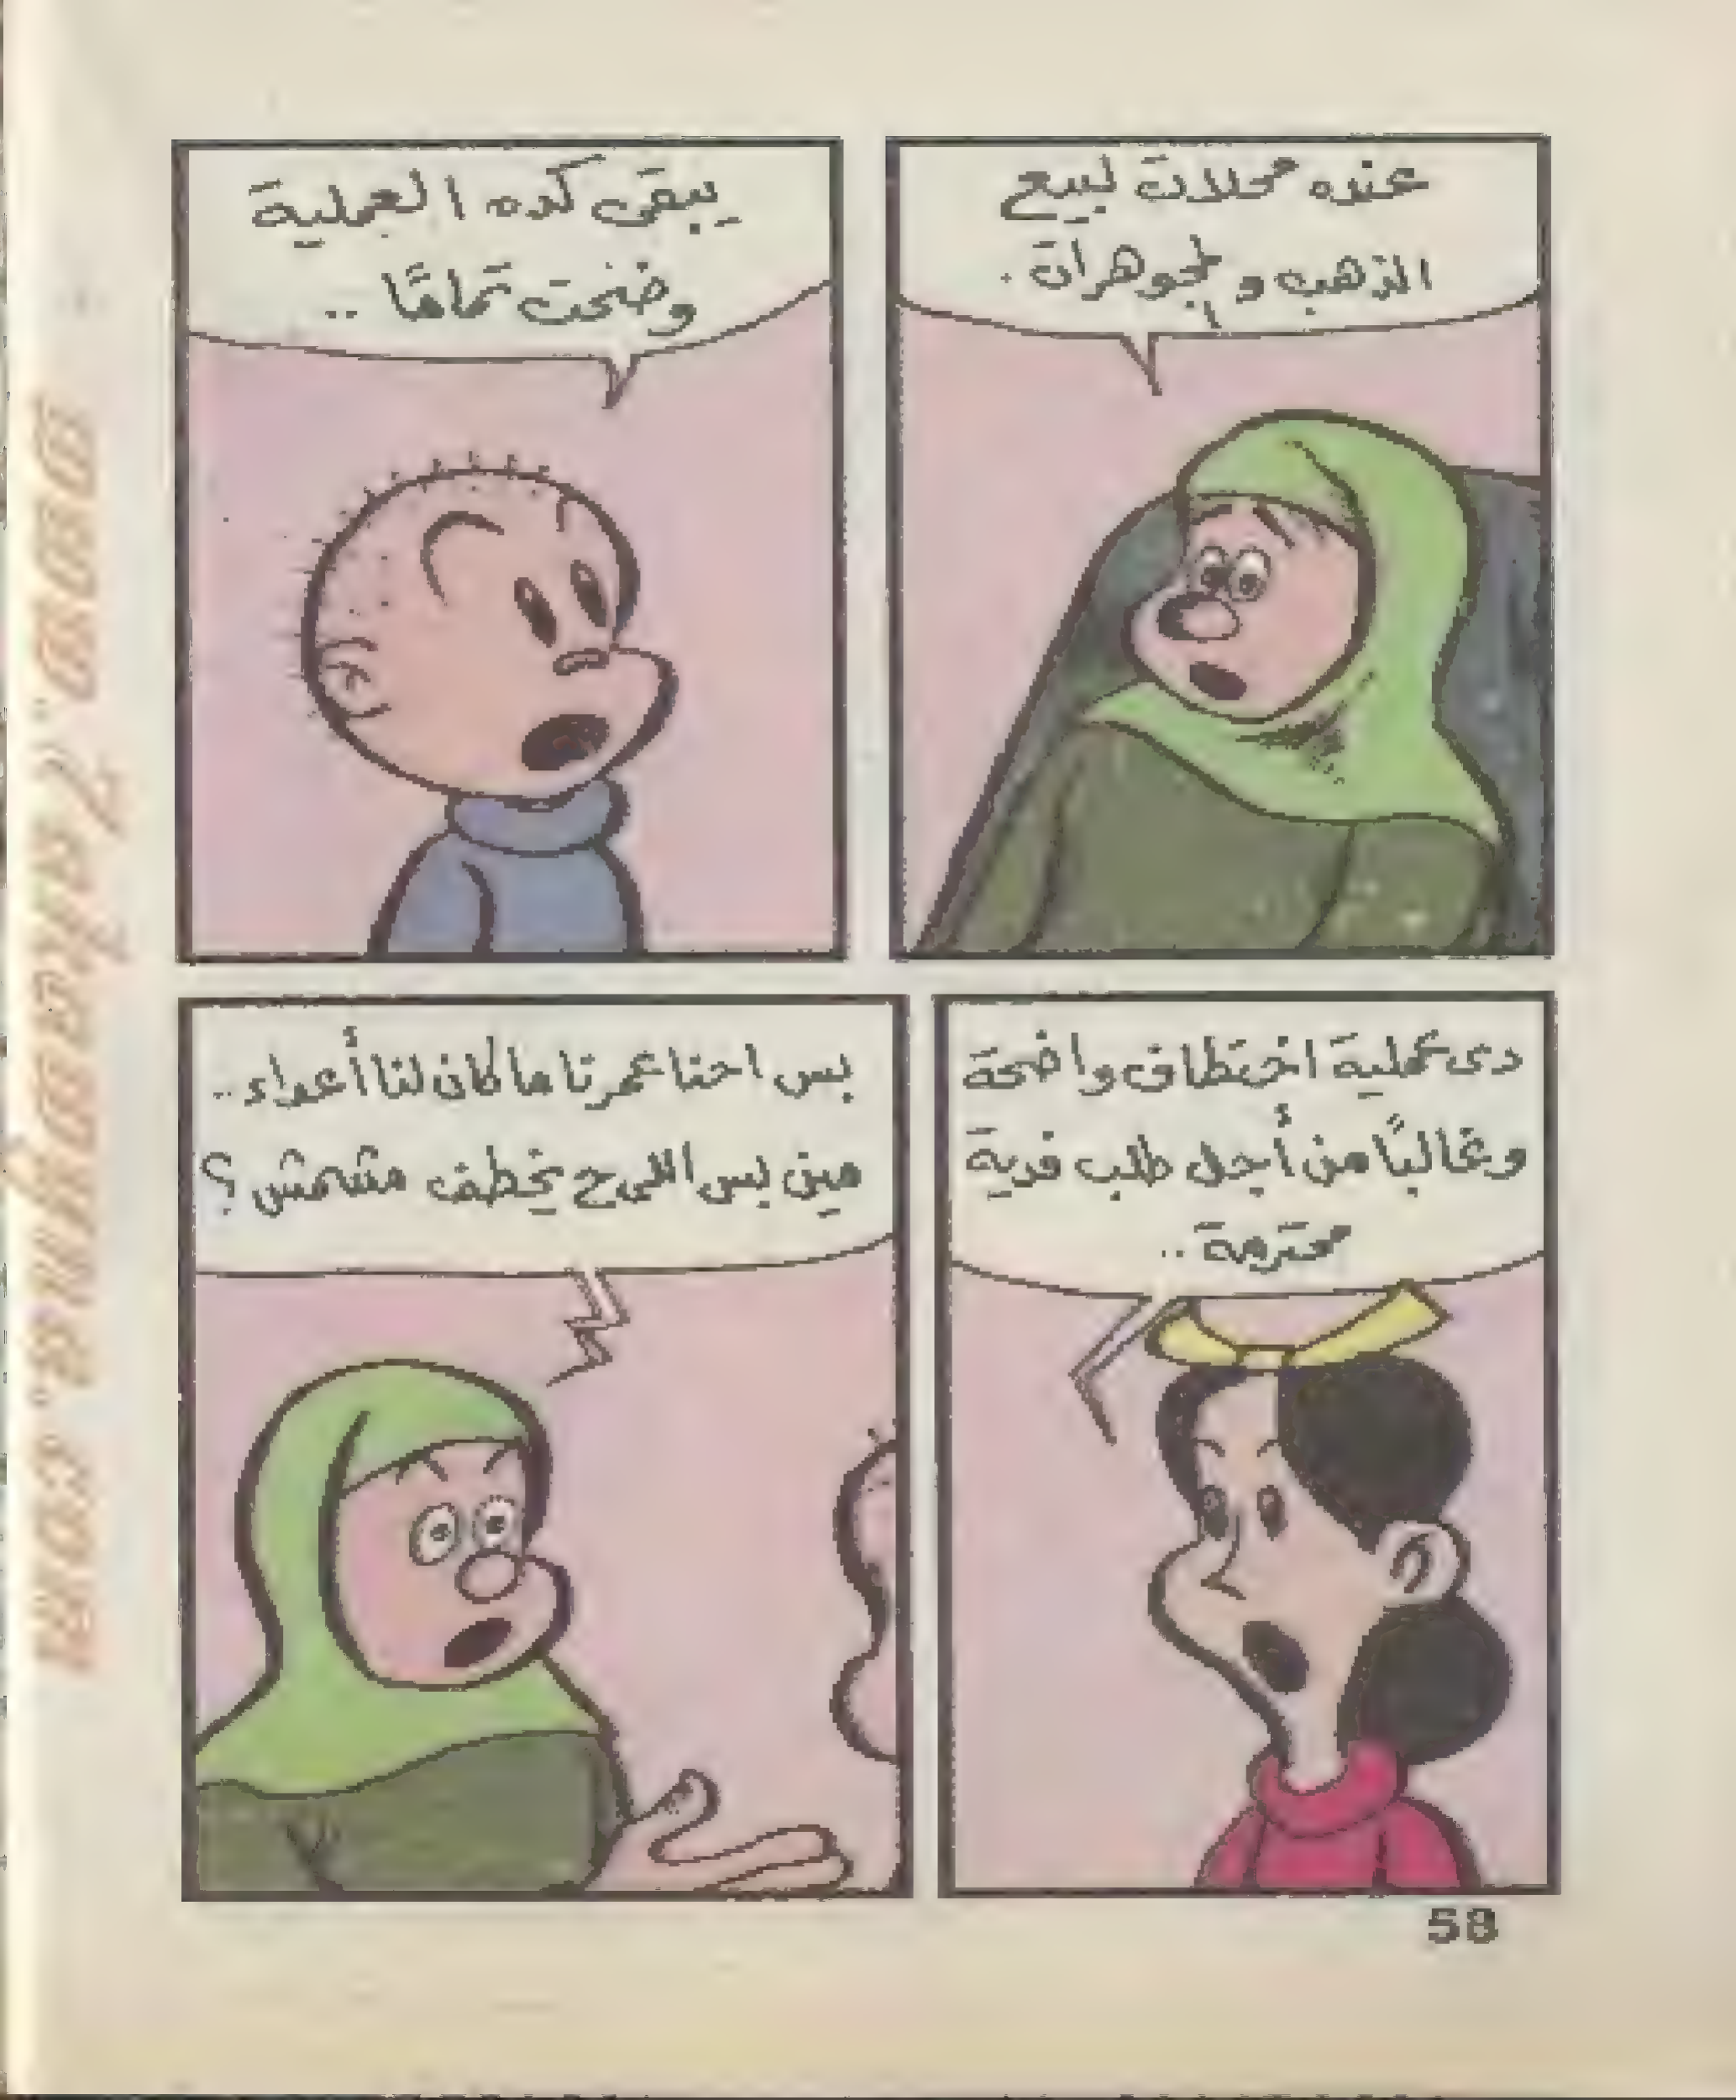 عنده محلات لبيع
الذهب والمجوهرات.
يبقى كده العملية
وضحت تمامًا..
دى عملية اختطاف واضحة
وغالبًا من أجل طلب فدية
محترمة..
بس احنا عمرنا ما كان لنا أعداء..
مين بس اللى ح يخطف مشمش؟
58